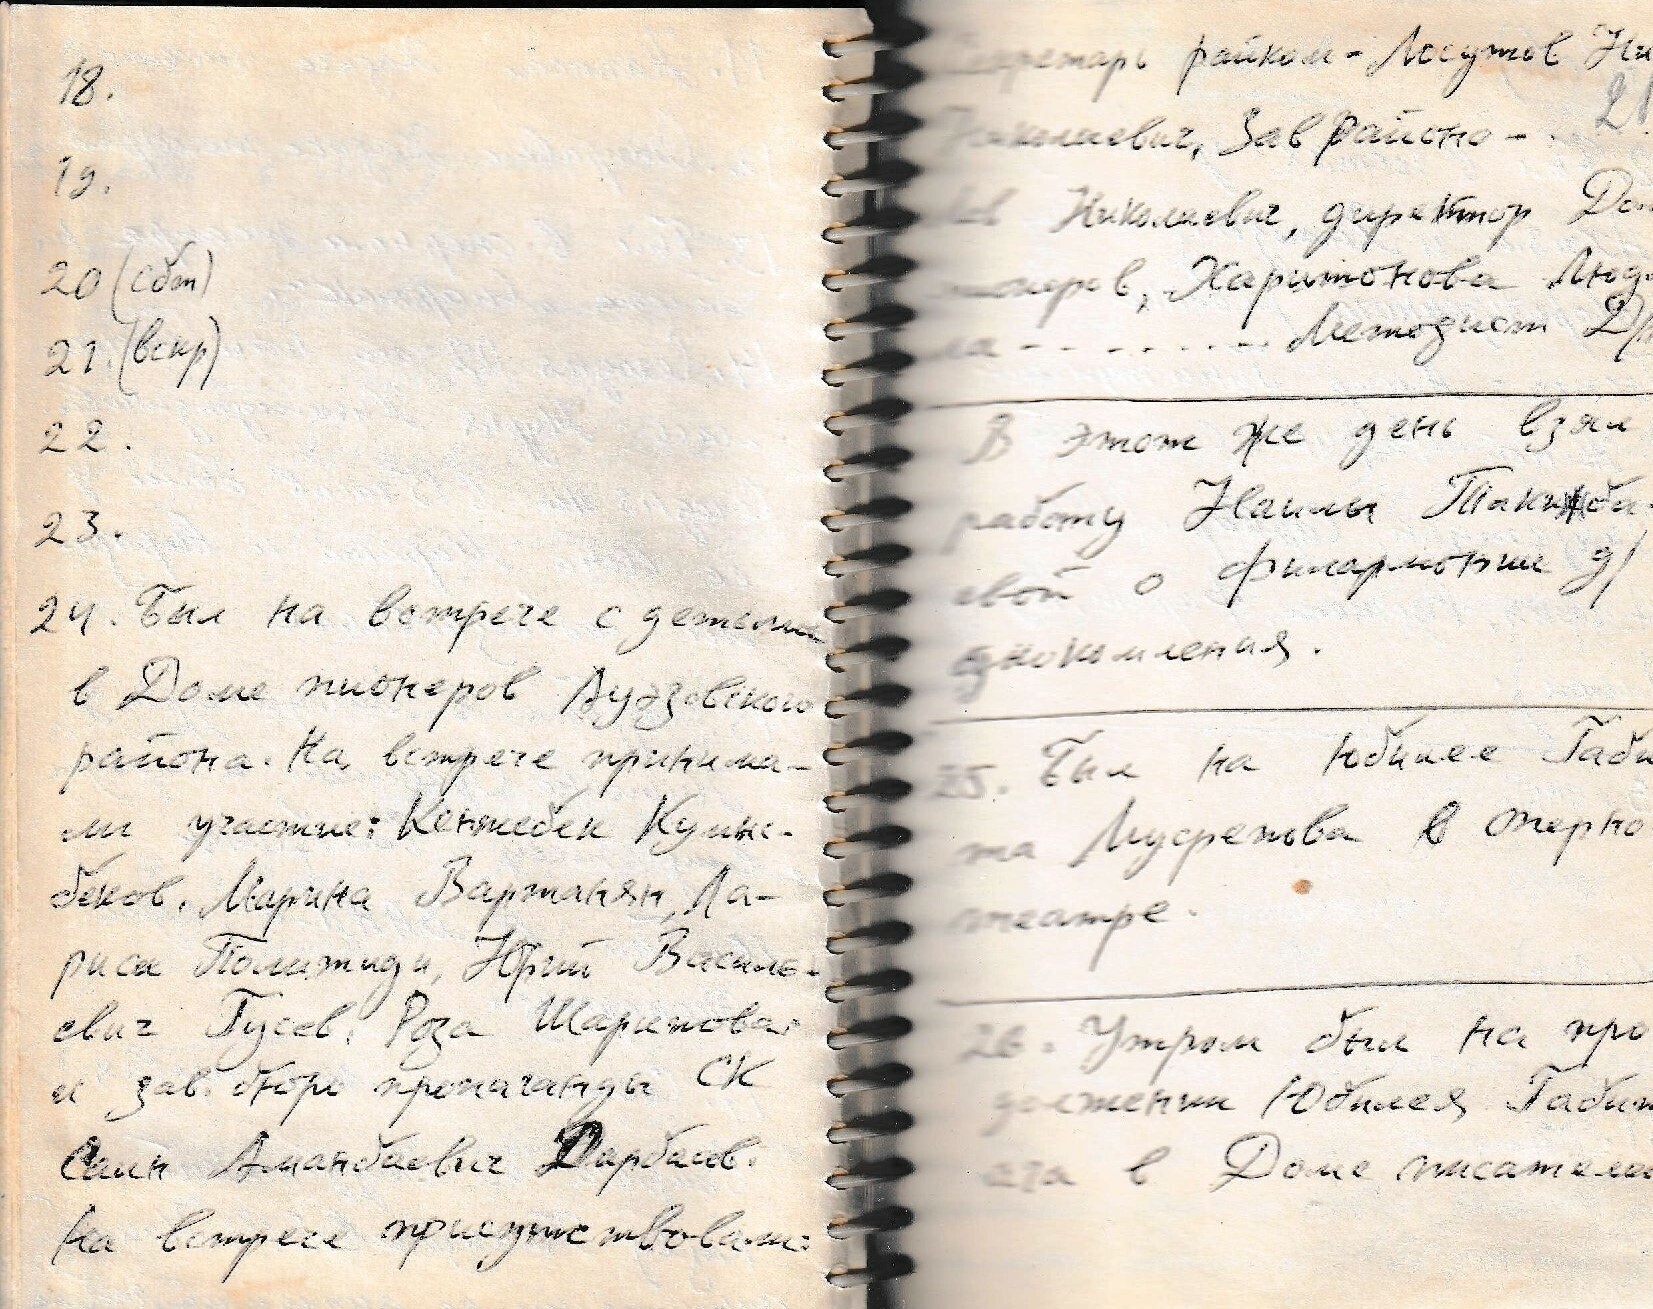 18.
19.
20 (сбт)
21. (вскр)
22.
23.
24. Был на встрече с детьми
в Доме пионеров Ауэзовского
района. На встрече принима-
ли участие: Кенжебек Кумис-
беков, Марина Вартанян, Ла-
риса Полижиди, Юрий Василь-
евич Гусев, Роза Шарипова
и зав. бюро пропаганды СК
Саин Аманбаевич Дарбаев.
На встрече присутствовали:
Секретарь райком - Лоскутов Ни
21
Николаевич, Зав Районо - -
Николаевич, директор Дом
пионеров, Харитонова Люд
ла - - - - - - - - Методист Д/п
В этот же день взял
работу Наилы Такижба-
евой о филармонии д/
ознакомления.
25. Был на Юбилее Габи
та Мусрепова в оперно
театре.
26. Утром был на про
должении Юбилея Габит
ага в Доме писателе